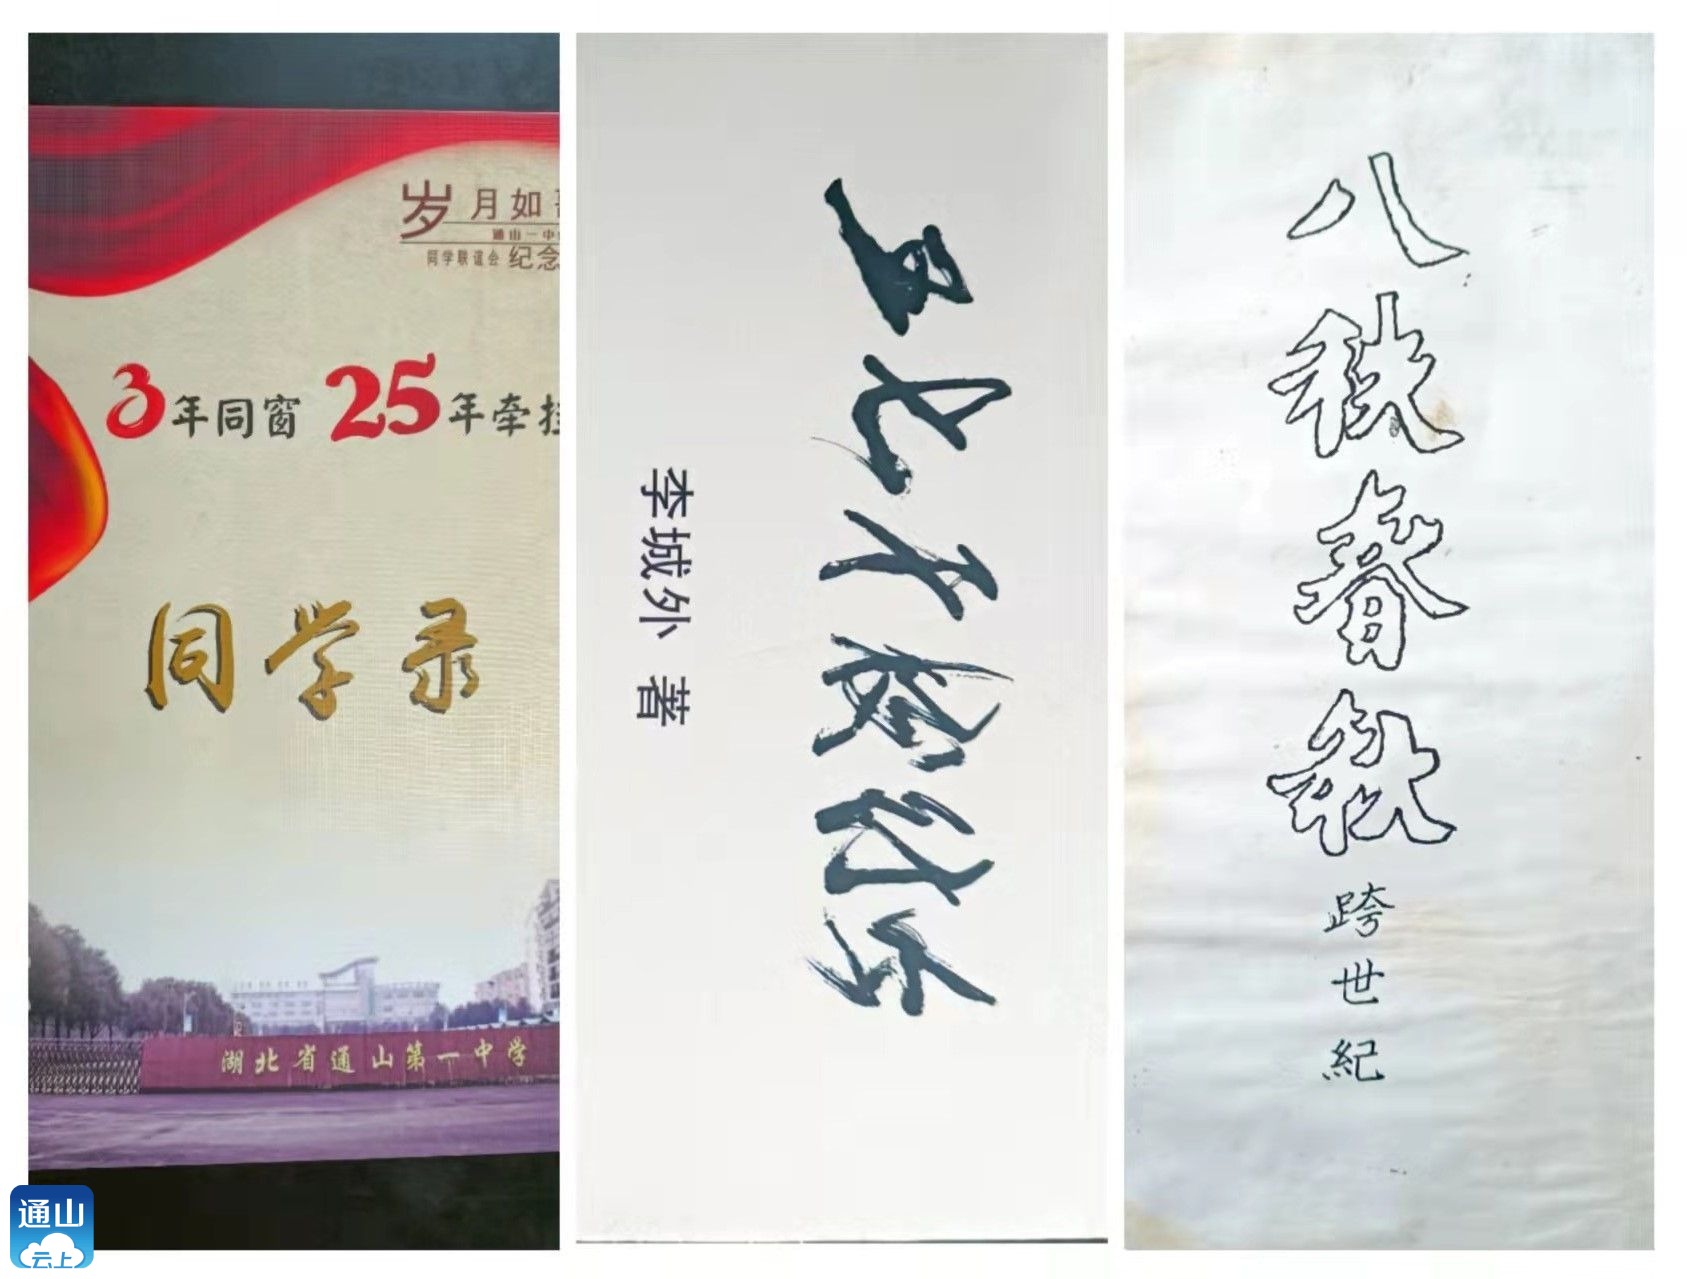 岁月如
通山一中
同学联谊会 纪念
3年同窗 25年牵
同学录
湖北省通山第一中学
通山
云上
五七干校
李城外 著
八秩春秋
跨世紀